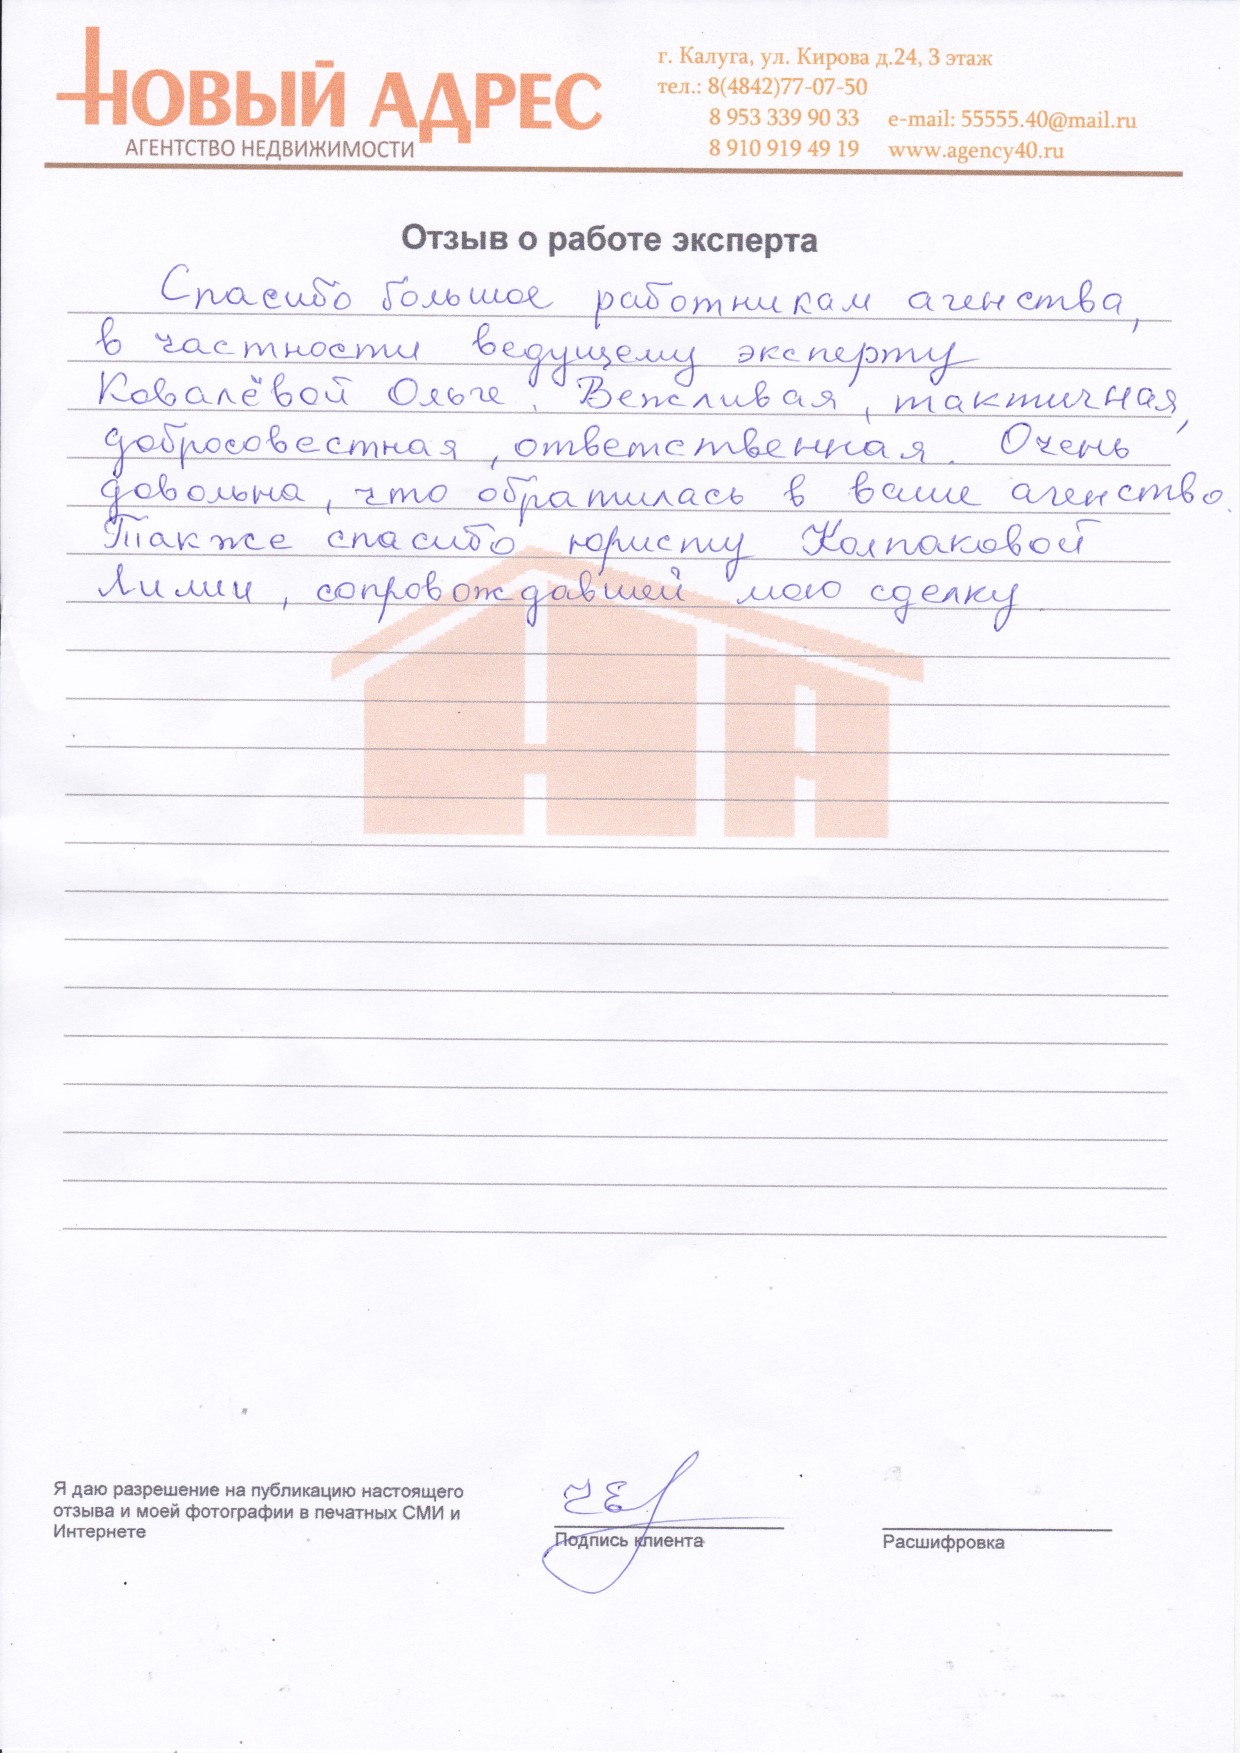 НОВЫЙ АДРЕС
АГЕНТСТВО НЕДВИЖИМОСТИ
г. Калуга, ул. Кирова д.24, 3 этаж
тел.: 8(4842)77-07-50
8 953 339 90 33 e-mail: 55555.40@mail.ru
8 910 919 49 19 www.agency40.ru
Отзыв о работе эксперта
Спасибо большое работникам агенства,
в частности ведущему эксперту
Ковалёвой Ольге. Вежливая, тактичная,
добросовестная, ответственная. Очень
довольна, что обратилась в ваше агенство.
Также спасибо юристу Колпаковой
Лилии, сопровождавшей мою сделку.
НА
Я даю разрешение на публикацию настоящего
отзыва и моей фотографии в печатных СМИ и
Интернете
Подпись клиента
Расшифровка